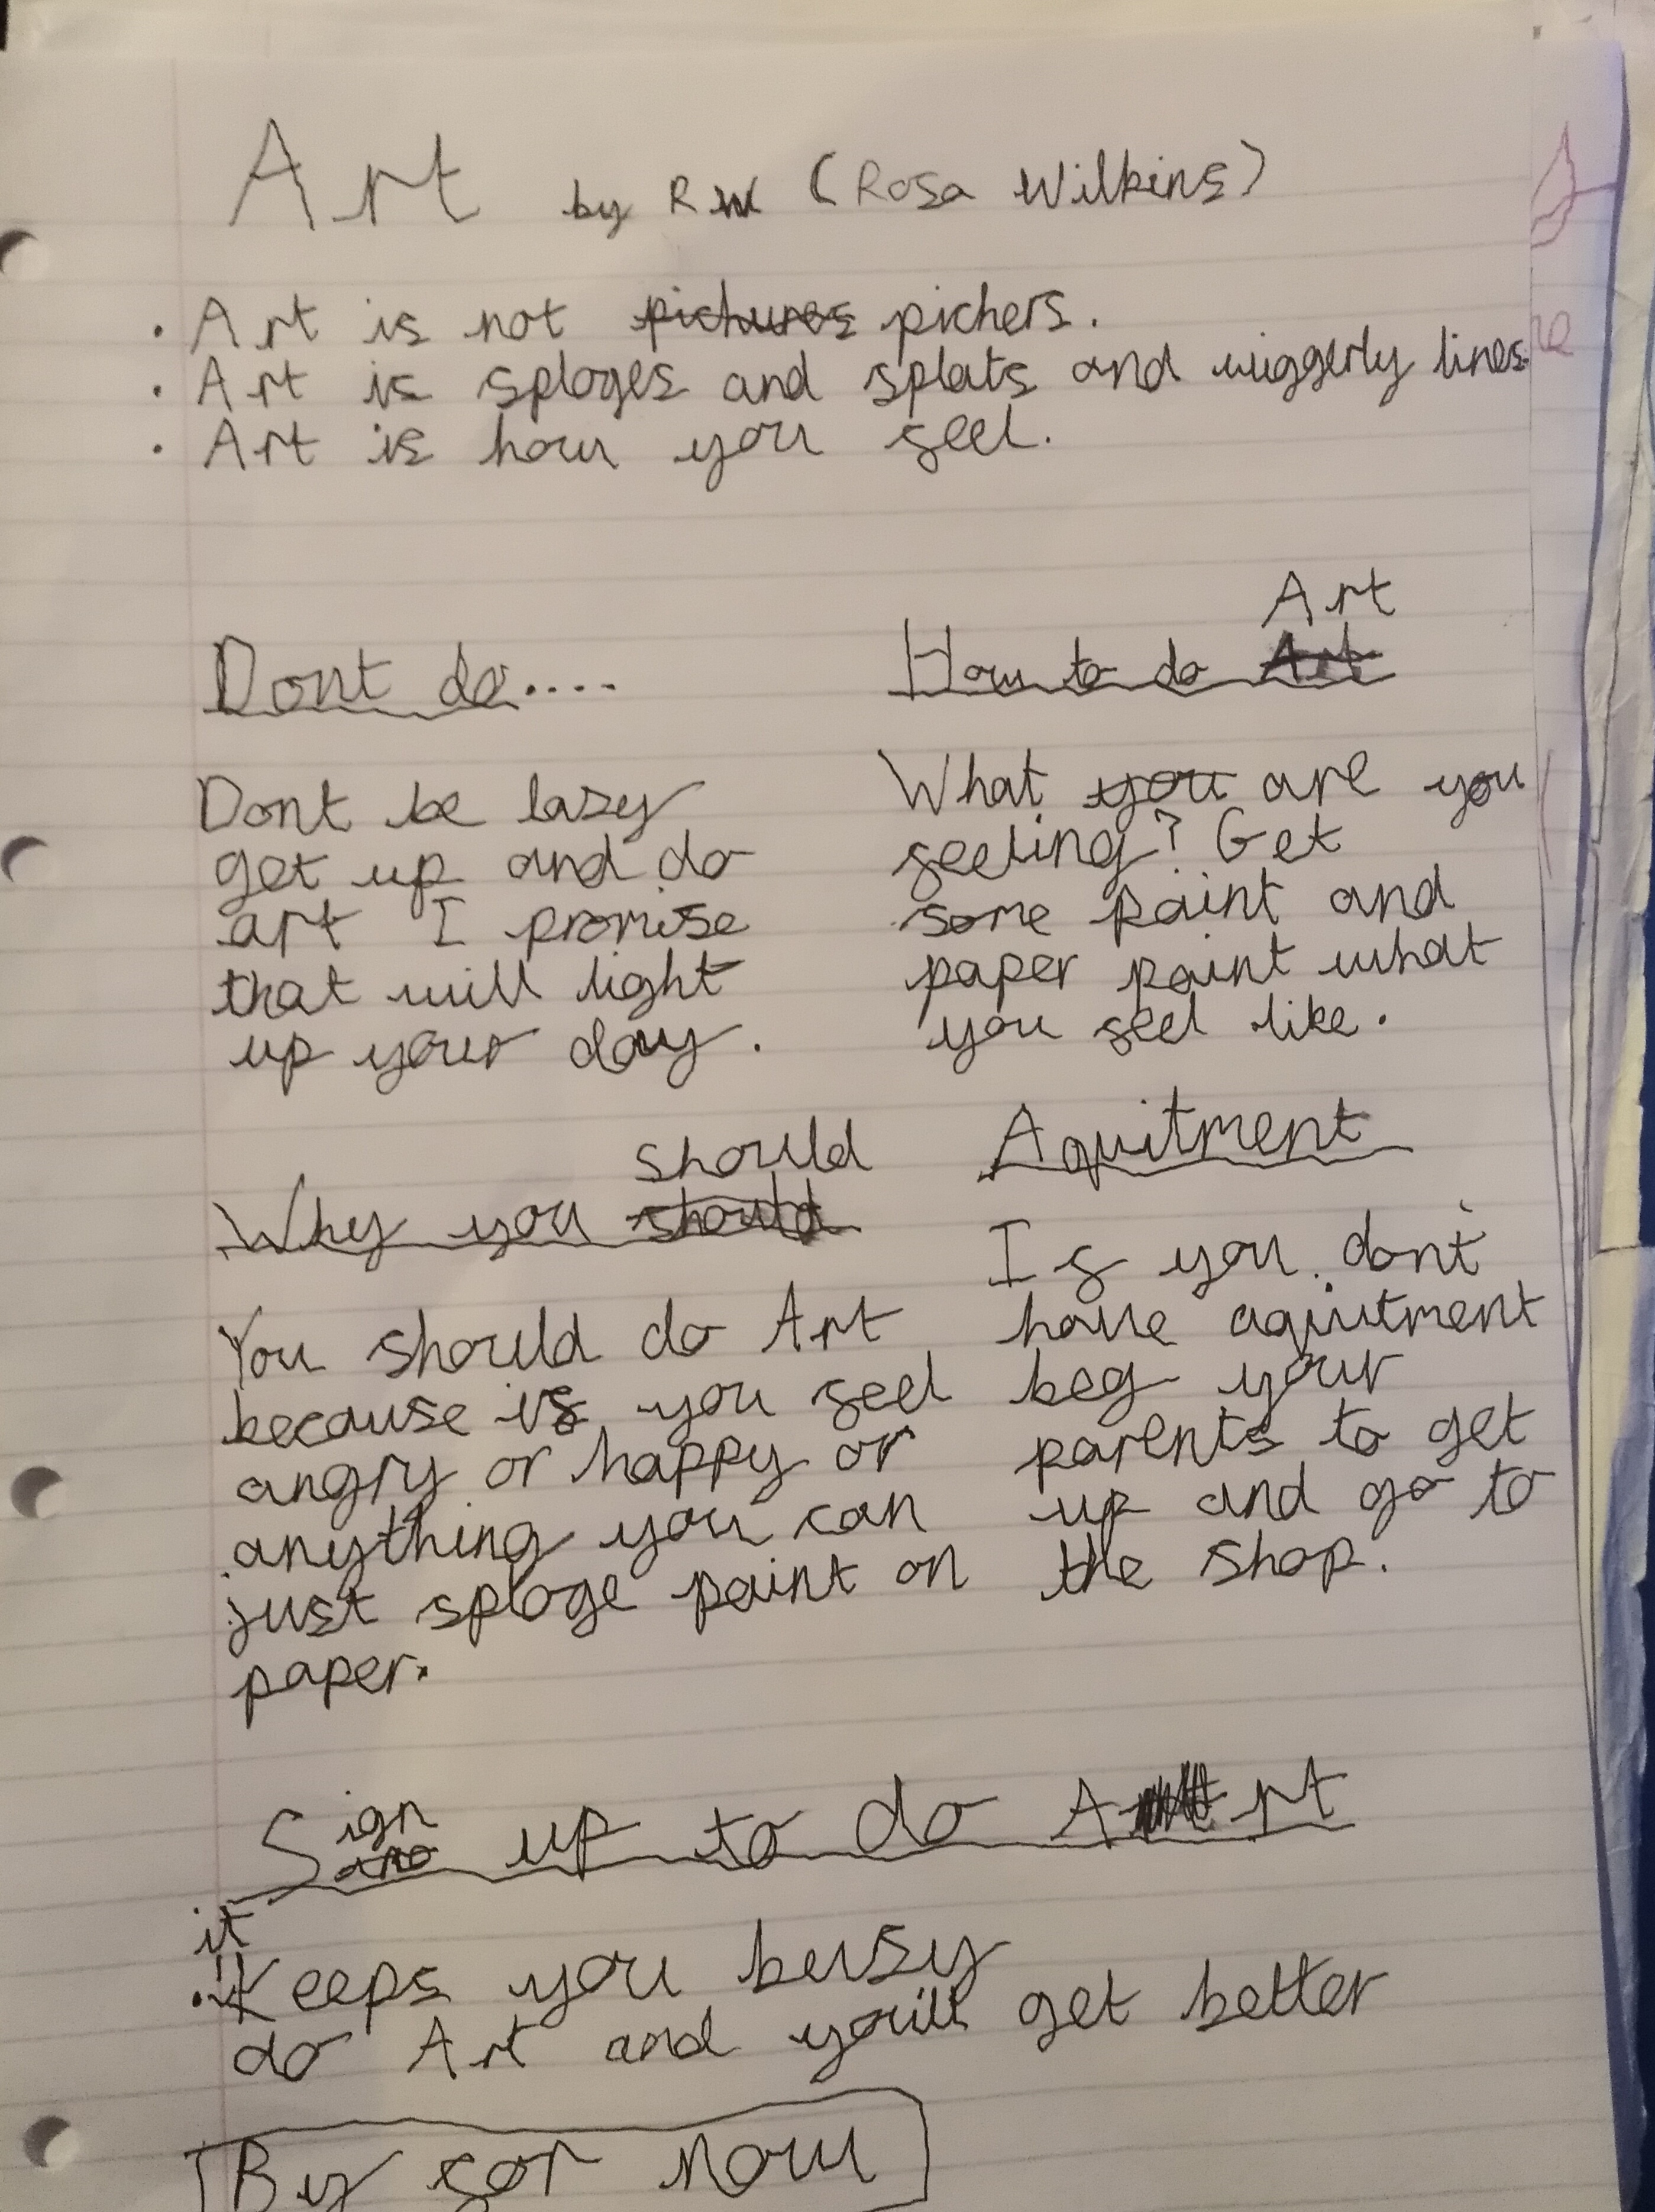 Art by RW (Rosa Wilkins)
· Art is not pichures pichers.
· Art is sploges and splats and wiggerly lines
· Art is how you feel.
Dont do....
Dont be lazy
get up and do
art I promise
that will light
up your day.
Art
How to do Art
What you are you
feeling? Get
some paint and
paper paint what
you feel like.
should
Why you should
You should do Art
because if you feel
angry or happy or
anything you can
just sploge paint on
paper.
Aquitment
If you don't
have aquitment
beg your
parents to get
up and go to
the shop.
Sign up to do Art
it
· Keeps you beusy
do Art and you'll get better
By for now